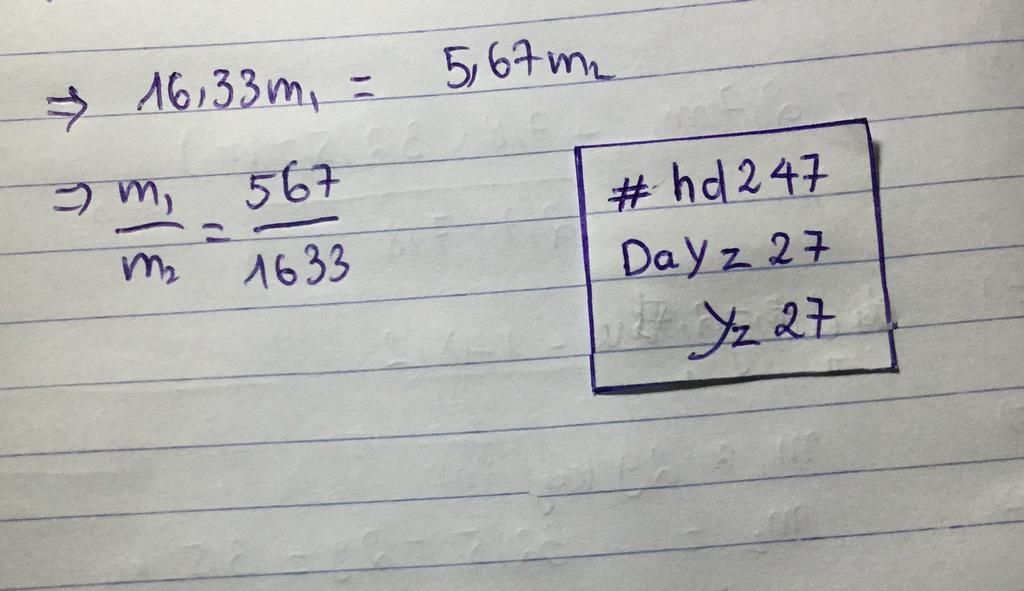 ⇒ 16,33m₁ = 5,67m₂
⇒ m₁/m₂ = 567/1633
# hd247
Dayz 27
Yz 27